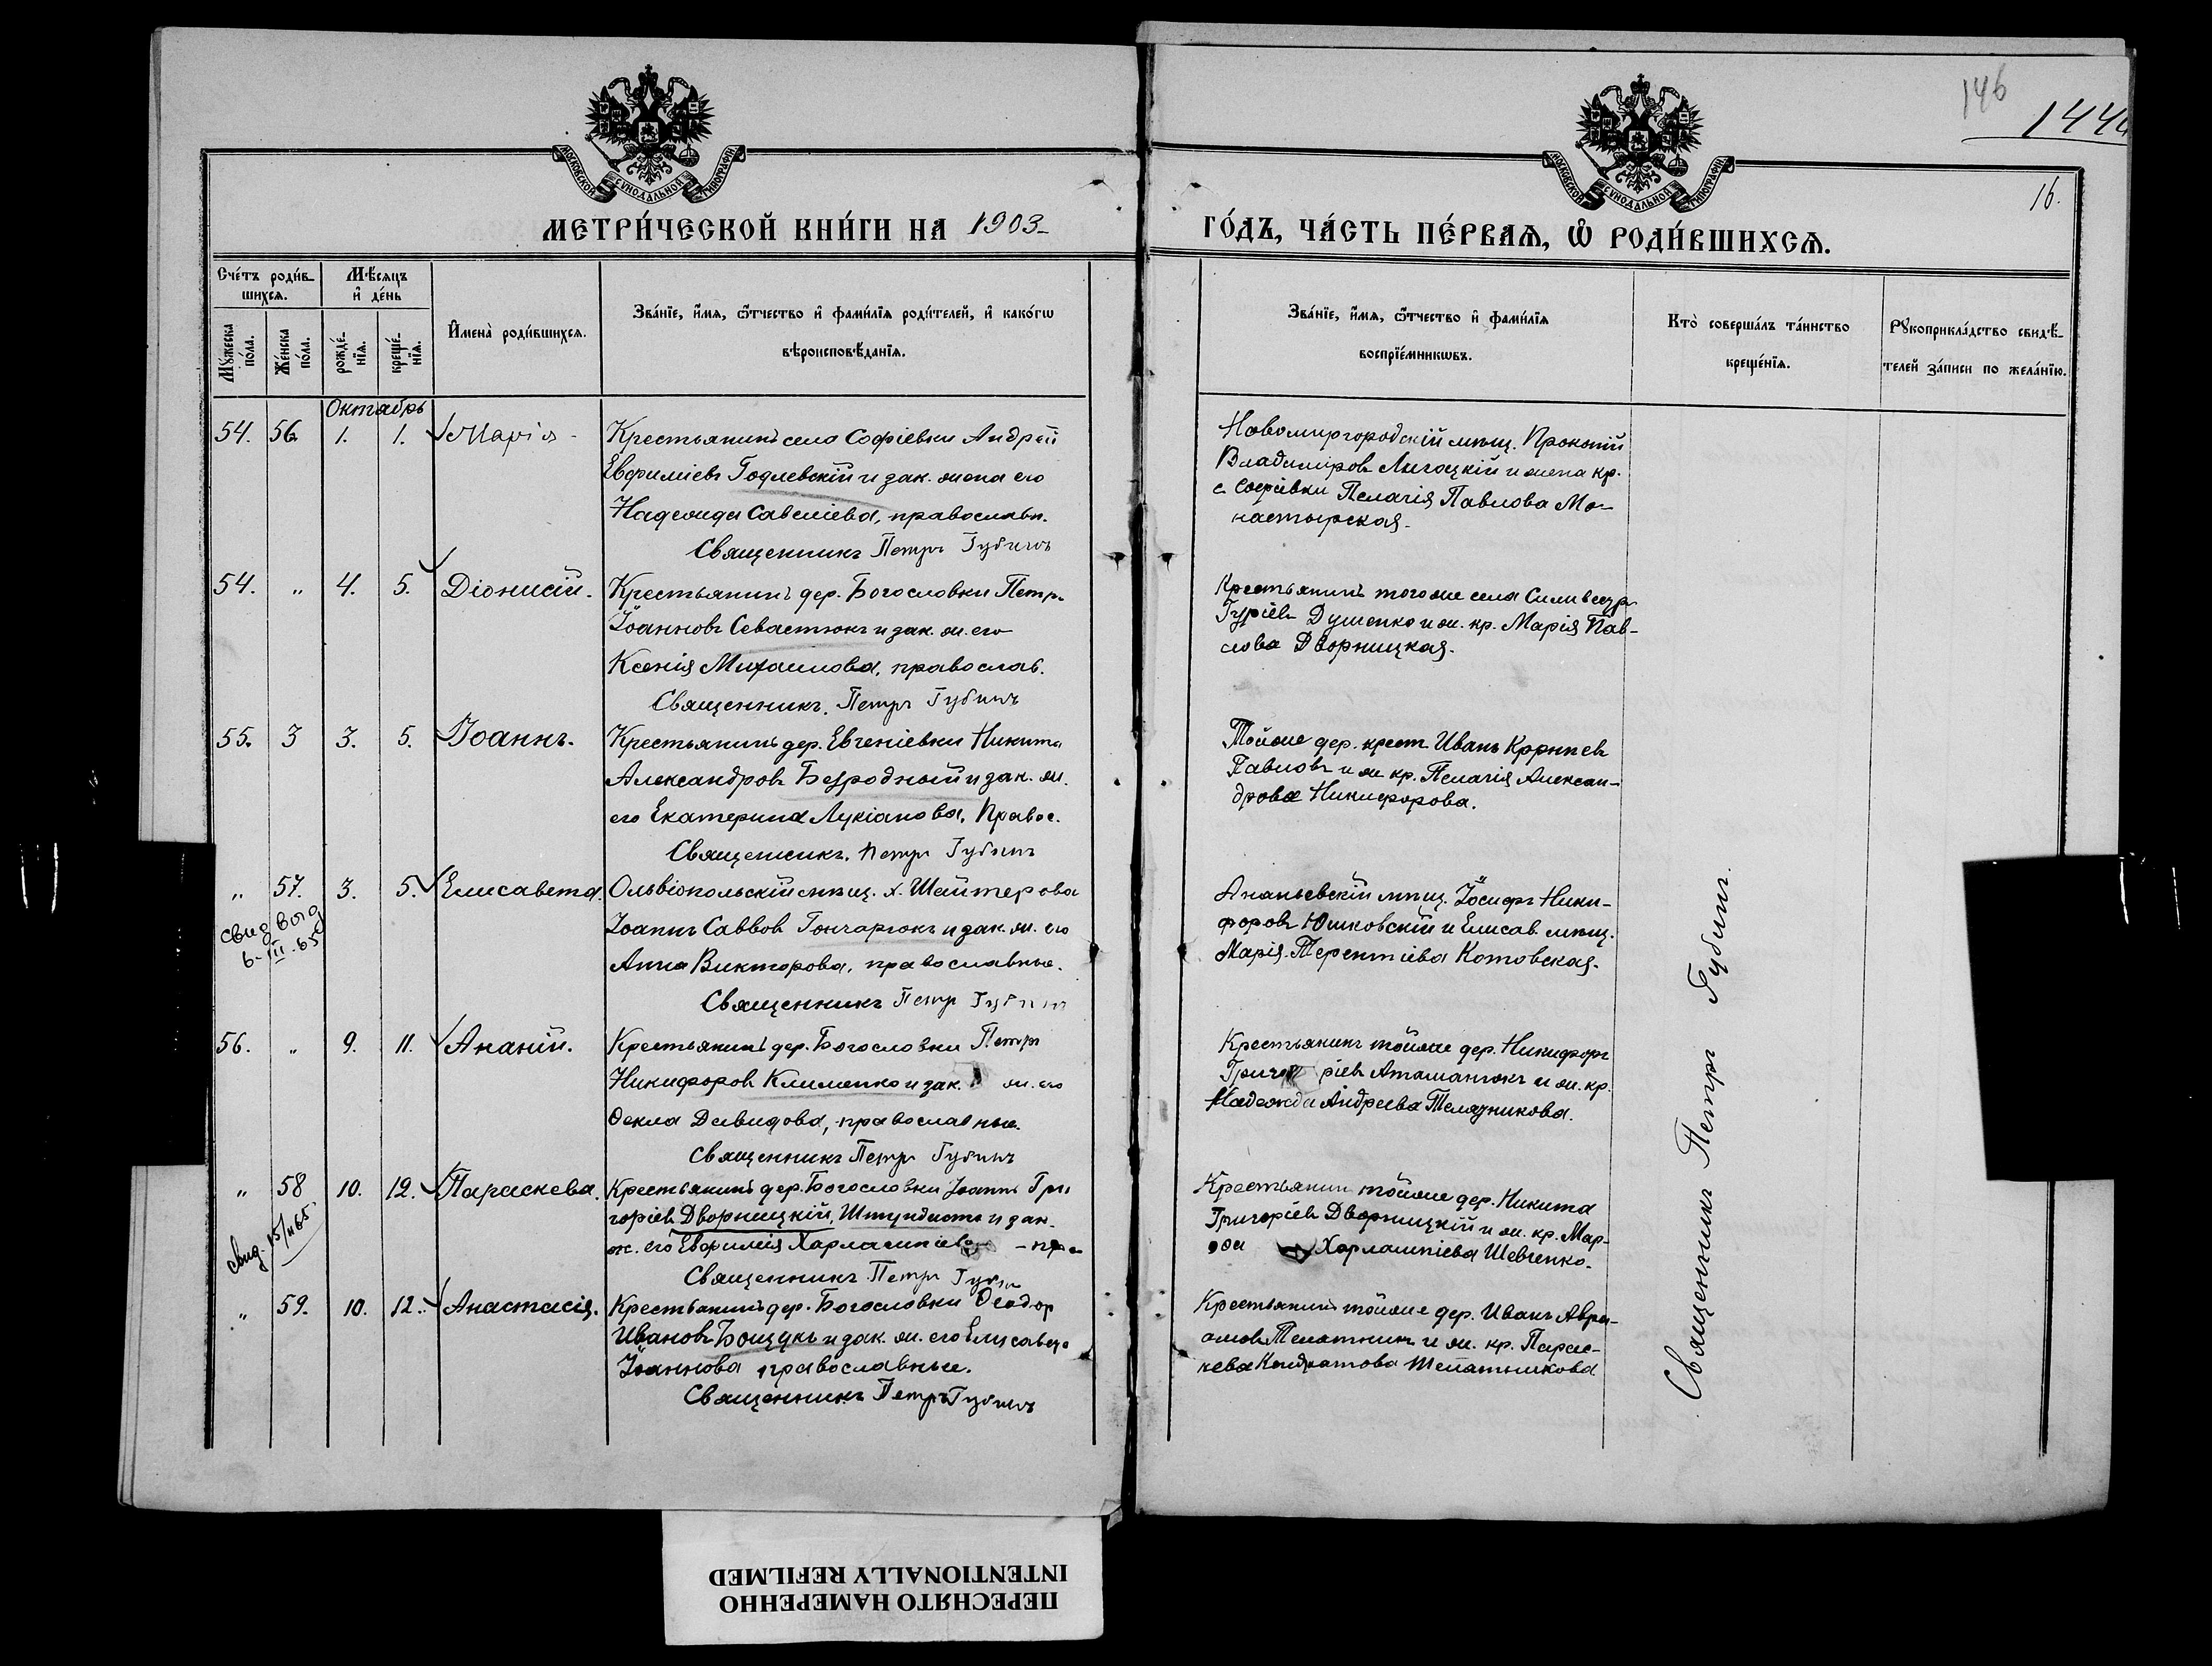 146
144
16.
МОСКОВСКОЙ СѴНОДАЛЬНОЙ ТИПОГРАФІИ
МОСКОВСКОЙ СѴНОДАЛЬНОЙ ТИПОГРАФІИ
МЕТРИ́ЧЕСКОЙ КНИ́ГИ НА 1903 ГО́ДЪ, ЧА́СТЬ ПЕ́РВАѦ, Ѡ҆ РОДИ́ВШИХСѦ.
Сче́тъ роди́в-
шихсѧ.
Мѣ́сѧцъ
и҆ де́нь
Мꙋ́жеска по́ла.
Же́нска по́ла.
рожде́-
нїѧ.
креще́-
нїѧ.
И҆мена̀ роди́вшихсѧ.
Зва́нїе, и҆́мѧ, ѻ҆́тчество и҆ фами́лїѧ роди́телей, и҆ како́гѡ
вѣроисповѣ́данїѧ.
Зва́нїе, и҆́мѧ, ѻ҆́тчество и҆ фами́лїѧ
воспрїе́мникѡвъ.
Кто̀ соверша́лъ та́инство
креще́нїѧ.
Рꙋкоприкла́дство свидѣ́-
телей за́писи по жела́нїю.
Октябрь
54. 56 1. 1. Марія
Крестьянинъ села Софіевки Андрей
Евфиміевъ Годлевскій и зак. жена его
Надежда Савеліева, православн.
Священникъ Петръ Губинъ
Новомиргородскій мѣщ. Прокопій
Владиміровъ Лигоцкій и жена кр.
с. Софіевки Пелагія Павлова Мо-
настырская.
54. " 4. 5. Діонисій.
Крестьянинъ дер. Богословки Петръ
Іоанновъ Севастюкъ и зак. ж. его
Ксенія Михаилова, православ.
Священникъ. Петръ Губинъ
Крестьянинъ того же села Сильвестръ
Гуріевъ Душенко и ж. кр. Марія Пав-
лова Дворницкая.
55. 3 3. 5. Іоаннъ.
Крестьянинъ дер. Евгеніевки Никита
Александровъ Безродный и зак. ж.
его Екатерина Лукіанова, Правос.
Священникъ. Петръ Губинъ
Тойже дер. крест. Иванъ
Павловъ и ж кр. Пелагія Алексан-
дрова Никифорова.
" 57. 3. 5. Елисавета.
свид выд
6-III-65
Ольвіопольскій мѣщ. х. Шайтерова
Іоаннъ Саввовъ Гончарюкъ и зак. ж. его
Анна Викторова, православные.
Священникъ Петр Губинъ
Ананьевскій мѣщ. Іосифъ Ники-
форовъ Юшковскій и Елисав. мѣщ.
Марія Терентіева Котовская.
56. " 9. 11. Ананій.
Крестьянинъ дер. Богословки Петръ
Никифоровъ Клименко и зак. ж. его
Ѳекла Давидова, православные.
Священникъ Петръ Губинъ
Крестьянинъ тойже дер. Никифоръ
Григоріевъ Атаманюкъ и ж. кр.
Надежда Андреева Телязникова.
" 58 10. 12. Параскева.
свид. 15/II 65
Крестьянинъ дер. Богословки Іоаннъ Гри
горіевъ Дворницкій, Штундистъ и зак.
ж. его Евфимія Харлампіева - пра
Священникъ Петръ Губин
Крестьянин тойже дер. Никита
Григоріевъ Дворницкій и ж. кр. Мар-
ѳа Харлампіева Шевченко.
" 59. 10. 12. Анастасія.
Крестьянинъ дер. Богословки Ѳеодор
Ивановъ Бощукъ и зак. ж. его Елисавета
Іоаннова православные.
Священникъ Петръ Губинъ
Крестьянинъ тойже дер. Иванъ Авра-
амовъ Телятник и ж. кр. Парас-
кева Кондратова Телятникова
Священникъ Петръ Губинъ.
ПЕРЕСНЯТО НАМЕРЕННО
INTENTIONALLY REFILMED